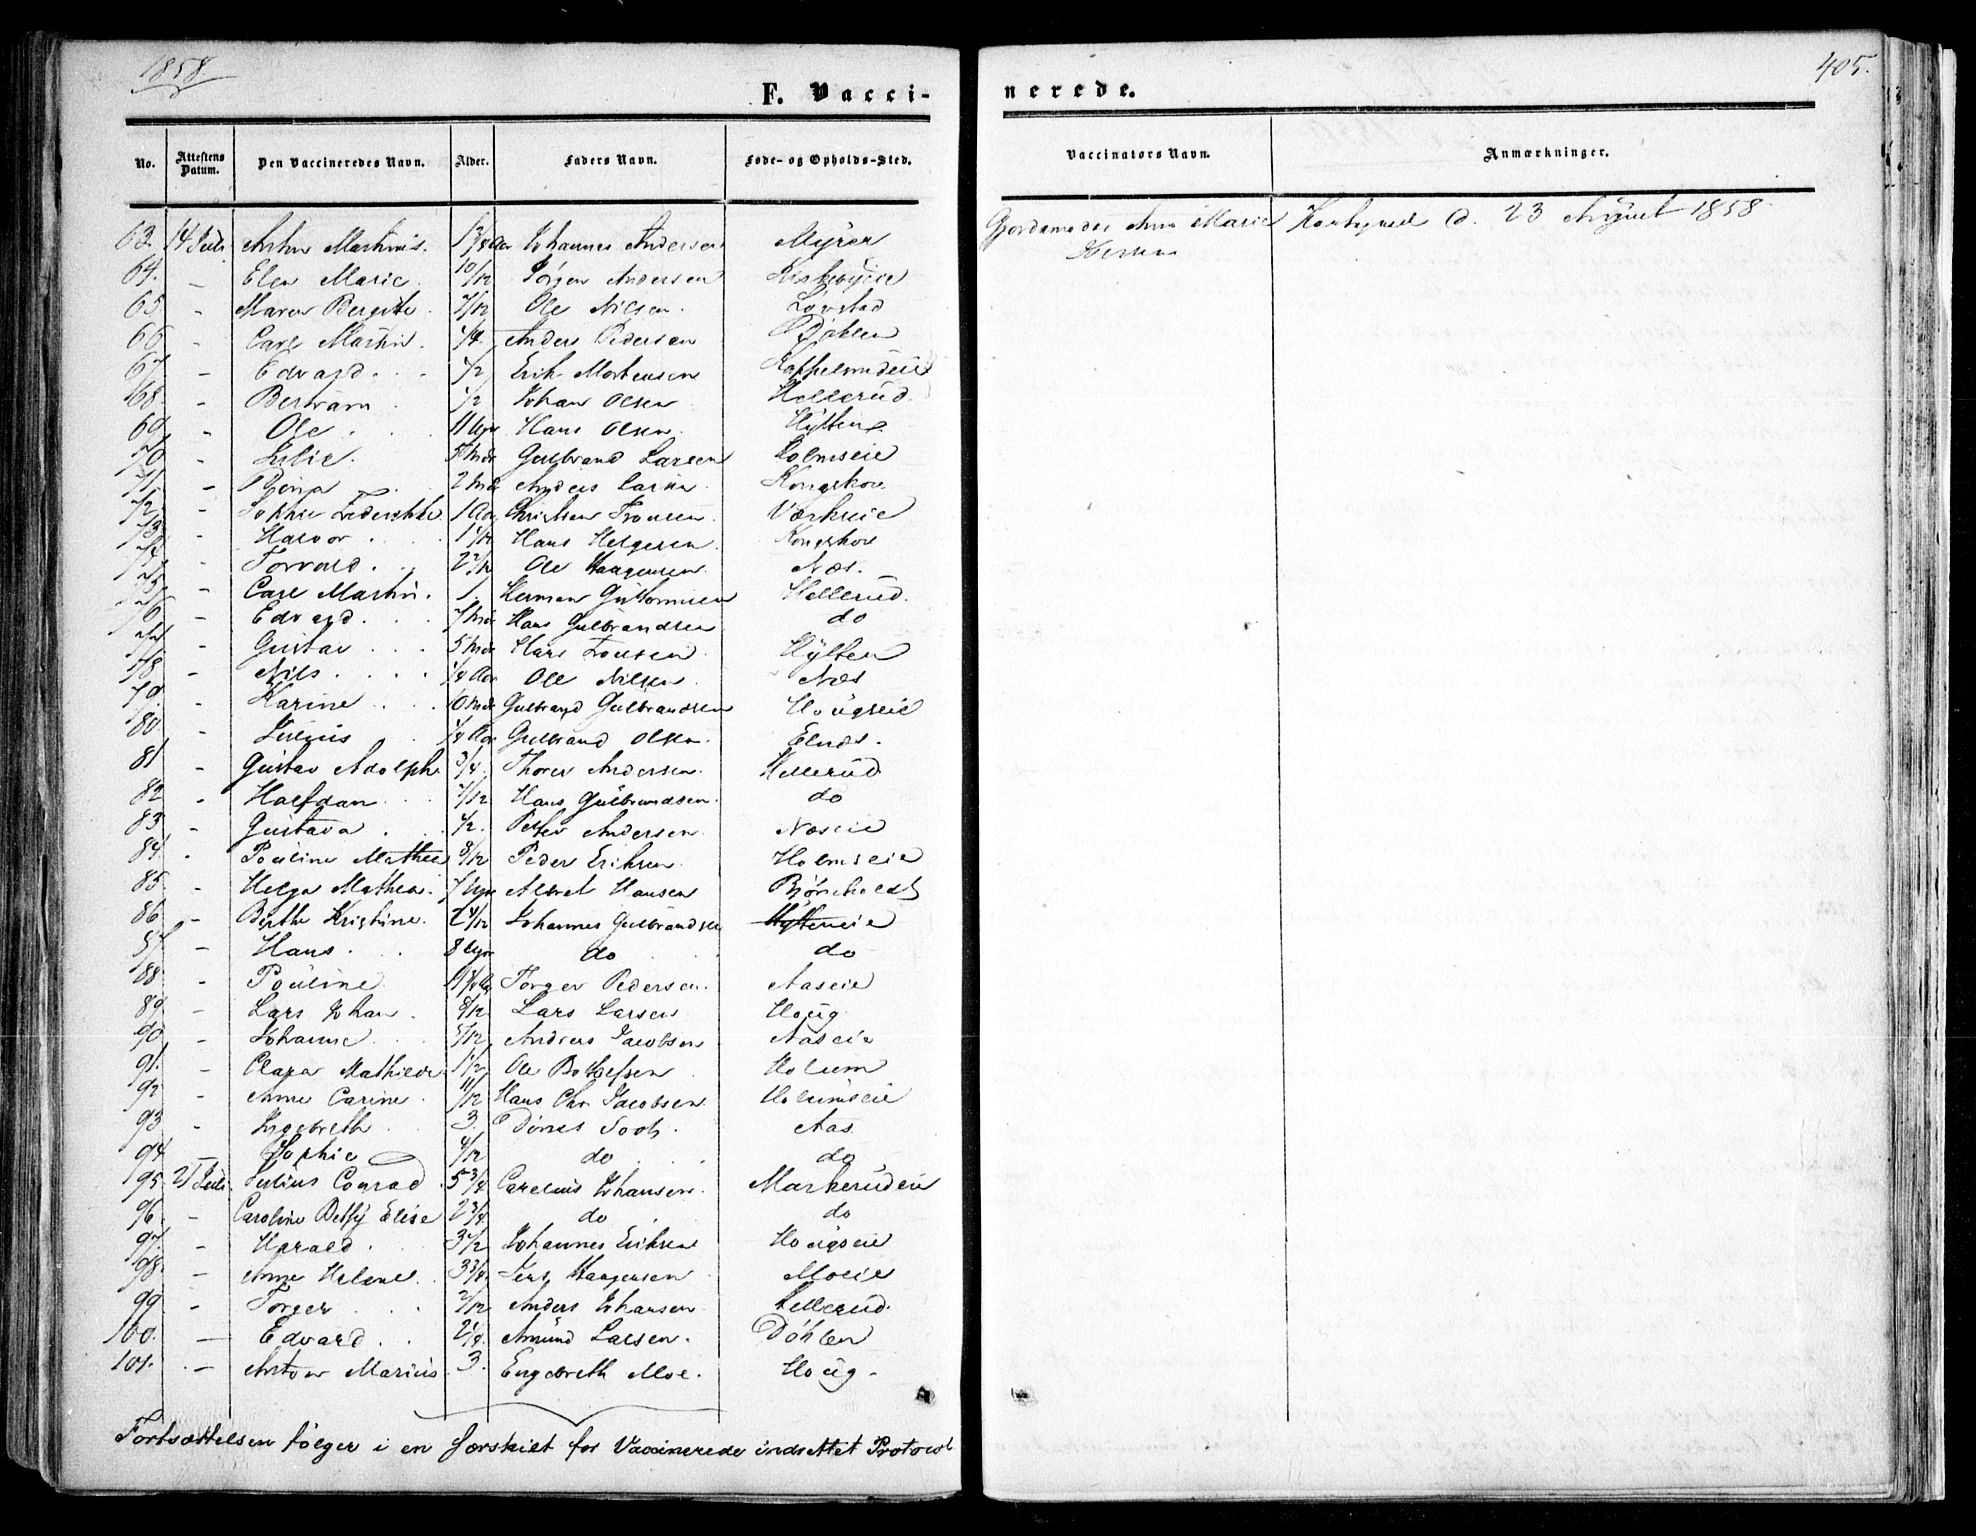 1858
405.
F. Vacci-
nerede.
No. Attestens Datum. Den Vaccineredes Navn. Alder. Faders Navn. Føde- og Opholds-Sted. Vaccinators Navn. Anmærkninger.
63. 14 Juli Martinis. Johannes Andersen Gjordemoder Ane Marie d. 23 August 1858
64. - Elen Marie. 10/12 Jørgen Andersen
65. - Maren Bergitte. 7/12 Ole Nilsen. Løvstad
66 - Carl Martin. Anders Pedersen Døhlen
67 - Edvard. 1/2 Erik Mortensen
68. - Bertram 1/2 Johan Olsen Hellerud.
69. - Ole. 11 Uger Hans Olsen. Hytten.
70 - Julie. 5 Mdr Gulbrand Larsen Holmseie
71. - 2 Mdr Anders Kongshov
72. - 1 Aar Christian Værkseie
73. - Halvor. Hans Helgesen. Kongshov
74. - Torvald. 2 Ole Haagensen. Næs.
75. - Carl Martin. 1. Herman Guttormsen Hellerud.
76 - Edvard. 7 Mdr Hans Gulbrandsen do
77 - Gustav 5 Mdr Hans Hytten
78 - Nils. 1/4 Aar Ole Nilsen. Næs
79. - Karine 10 Mdr Gulbrand Gulbrandsen Hougseie
80 - Julius 1/4 Aar Gulbrand Olsen.
81 - Gustav Adolph 3/4. Thorer Andersen. Hellerud
82 - Halfdan 7/12 Hans Gulbrandsen. do
83. - Gustava 1/2. Andersen Næseie
84. - Pouline Mathea 8/12 Peder Eriksen Holmseie
85. - Helga Mathea. 7 Uger Albret Hansen Bjørnholdt
86. - Berthe Kristine. 2 4/12 Johannes Gulbrandsen Hytteneie
87 - Hans. 8 Uger do do
88. - Pouline Torger Pedersen. Aaseie
89. - Lars Johan. 8/12 Lars Larsen Houg.
90. - Johanne 5/12 Andreas Jacobsen Aaseie
91. - Clara Mathilde 1 1/2 Ole Holum
92 - Anne Carine. 11/12 Hans Chr. Jacobsen Holumseie
93 - Ingebreth 3. Aas
94. - Sophie 4/12 do do
95. 21 Juli. Julius Conrad 5 3/4 Carelius Johansen. Markeruden
96. - Caroline Betsy Elise 2 3/4. do do
97. - Harald. 3 1/2 Johannes Eriksen Hougseie
98. - Anne Helene 3 3/4. Jens Haagensen Moeie
99 - Torger 2/12 Anders Johansen Hellerud.
100. - Edvard. 2 1/4. Amund Larsen. Døhlen
101. - Anton Marius 3. Engebreth Moe. Houg.
Fortsættelsen følger i en særskilt for Vaccinerede indrettet Protocol